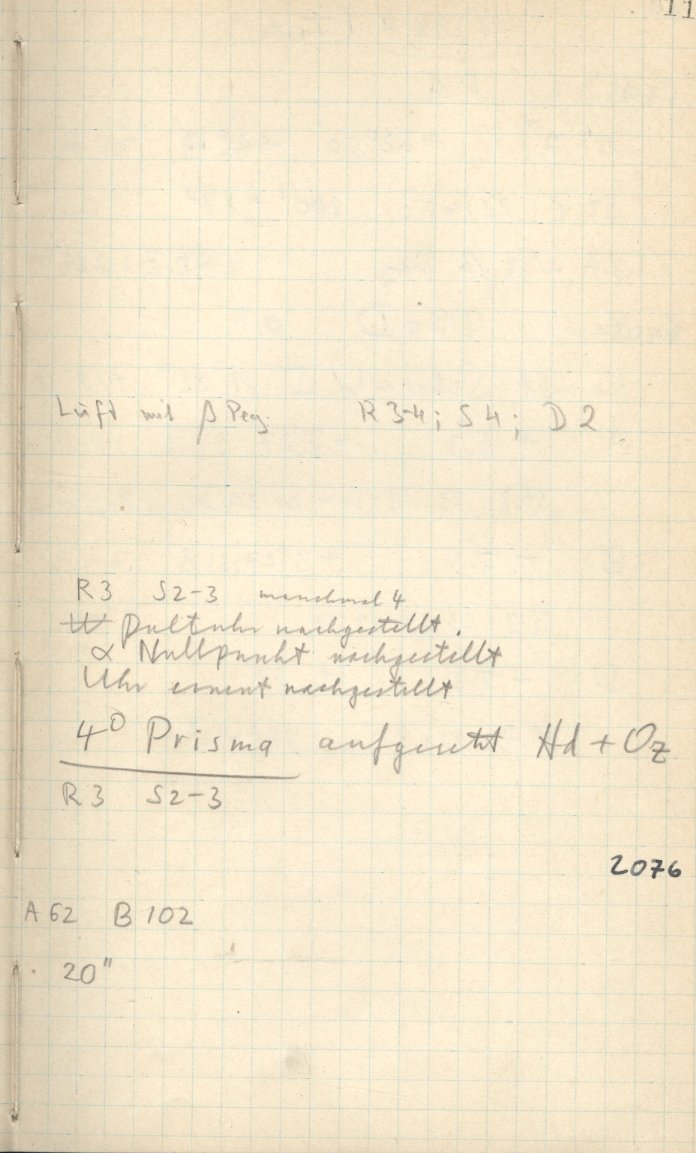 11
Luft mit β Peg. R 3-4; S 4; D 2
R 3 S 2-3 manchmal 4
Pultuhr nachgestellt.
α Nullpunkt nachgestellt
Uhr erneut nachgestellt
4° Prisma aufgesetzt Hd + Oz
R 3 S 2-3
2076
A 62 B 102
20"